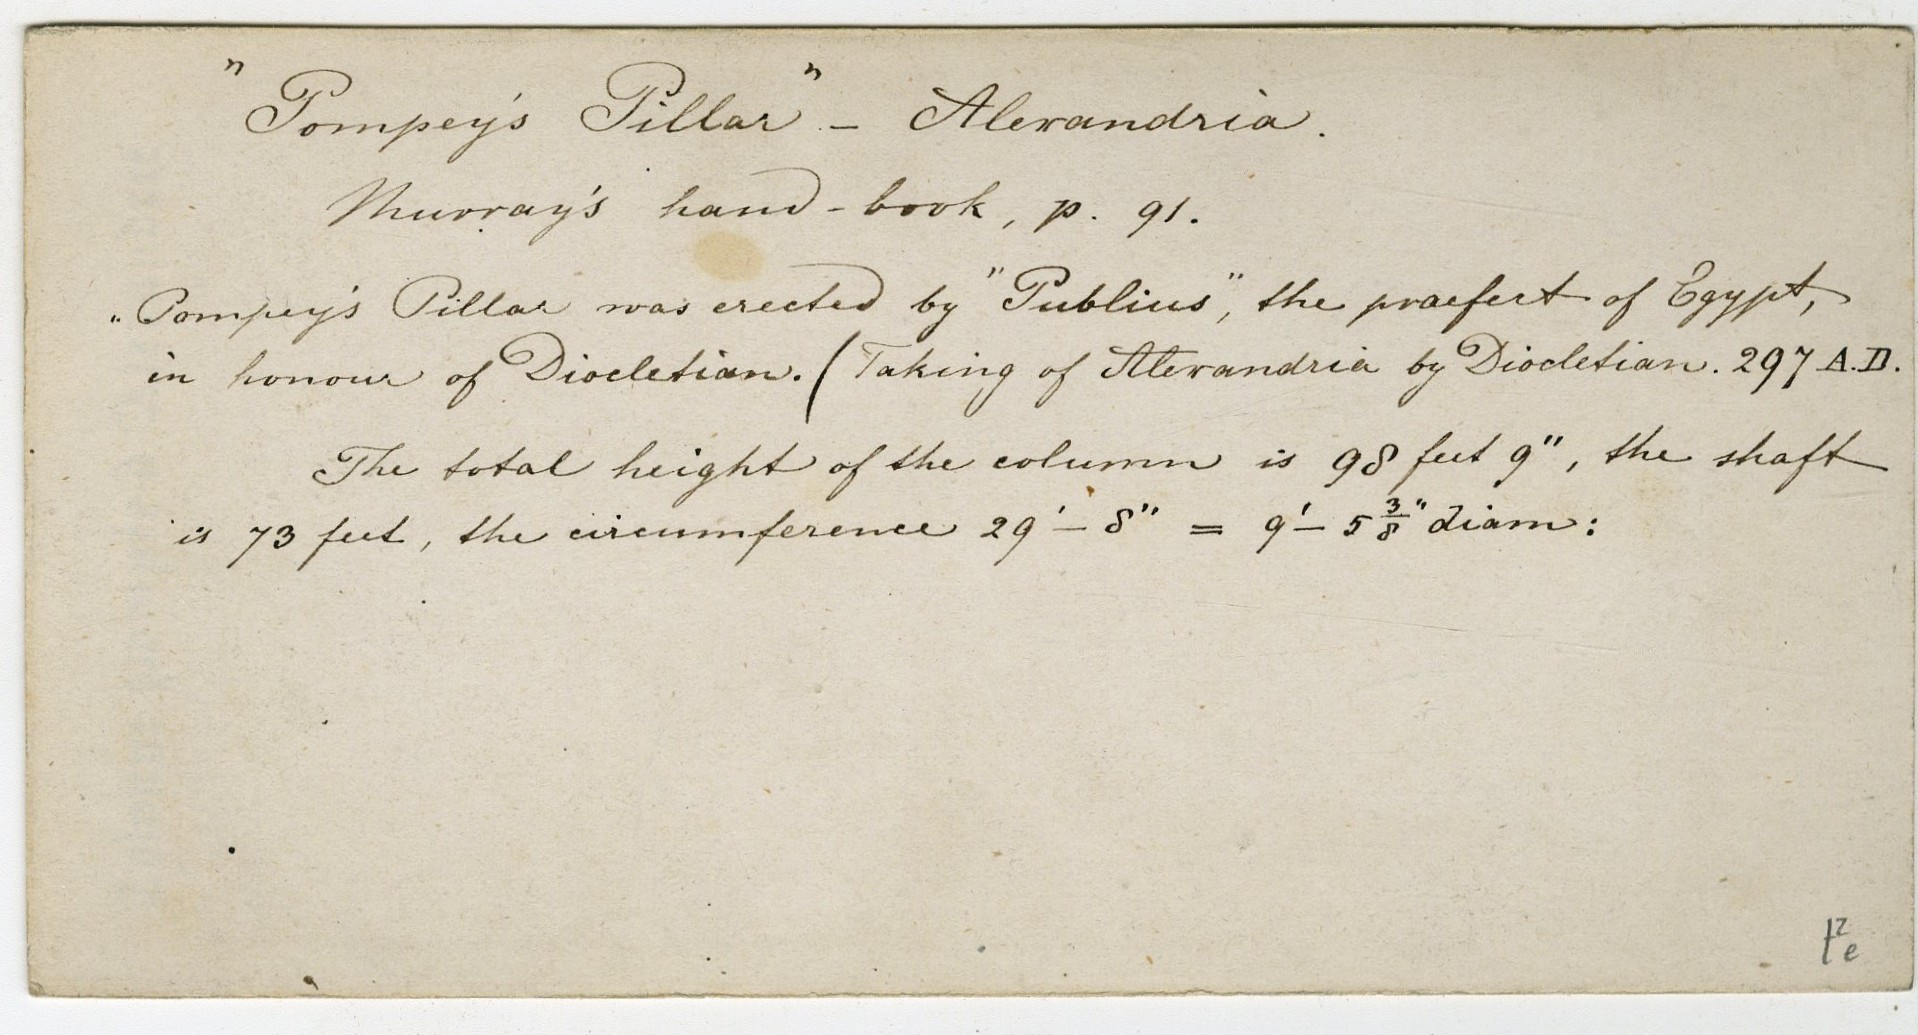 "Pompey's Pillar" – Alexandria.
Murray's hand-book, p. 91.
"Pompey's Pillar was erected by "Publius", the praefect of Egypt,
in honour of Diocletian. (Taking of Alexandria by Diocletian. 297 A.D.
The total height of the column is 98 feet 9", the shaft
is 73 feet, the circumference 29'– 8" = 9'– 5 3/8" diam: